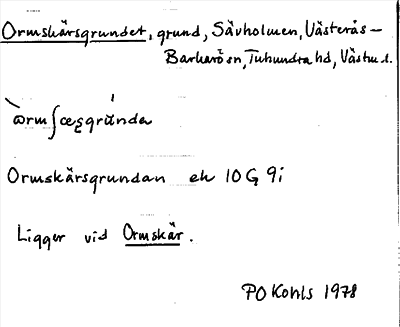 Ormskärsgrundet, grund, Sävholmen, Västerås-
Barkarö sn, Tuhundra hd, Västm l.
Ormskärsgrundan ek 10 G 9i
Ligger vid Ormskär.
PO Kohls 1978